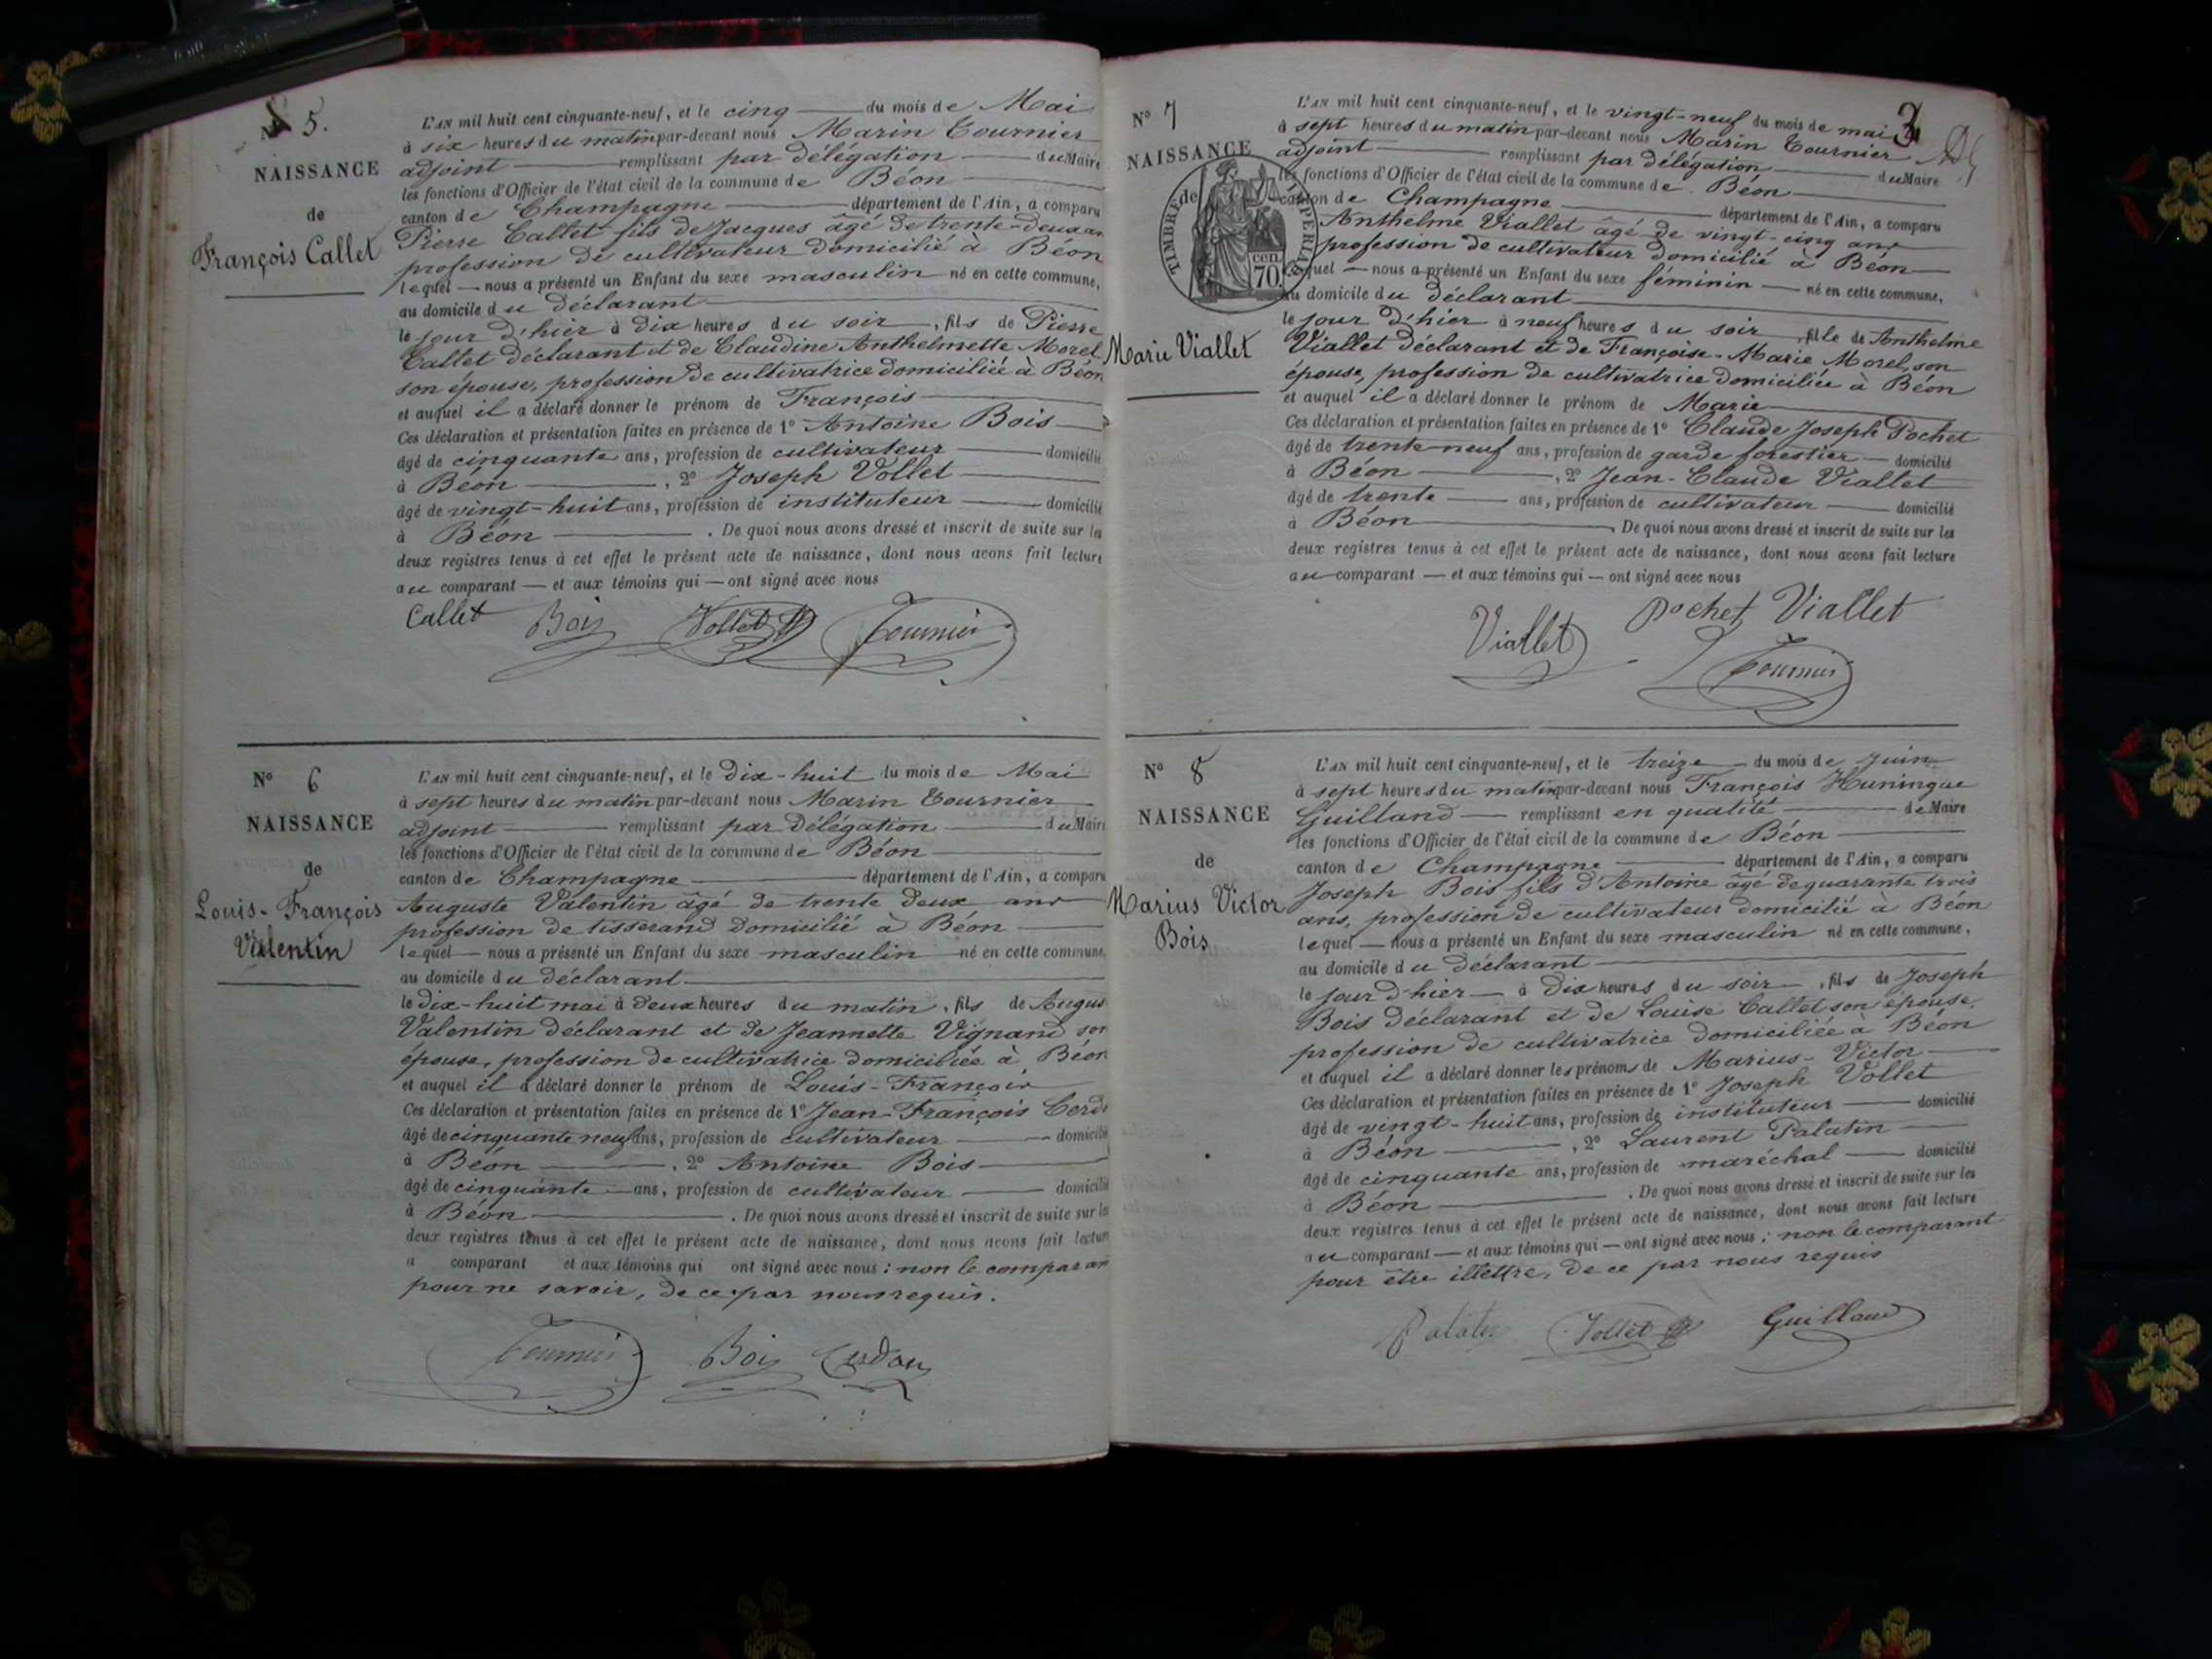 N° 5.
NAISSANCE
de
François Callet
L'AN mil huit cent cinquante-neuf, et le cinq du mois de Mai
à six heures du matin par-devant nous Marin Tournier
adjoint remplissant par délégation du Maire
les fonctions d'Officier de l'état civil de la commune de Béon
canton de Champagne département de l'Ain, a comparu
Pierre Callet fils de Jacques âgé de trente-deux an
profession de cultivateur domicilié à Béon
lequel nous a présenté un Enfant du sexe masculin né en cette commune,
au domicile du déclarant
le jour d'hier à dix heures du soir, fils de Pierre
Callet déclarant et de Claudine Anthelmette Morel
son épouse, profession de cultivatrice domiciliée à Béon
et auquel il a déclaré donner le prénom de François
Ces déclaration et présentation faites en présence de 1° Antoine Bois
âgé de cinquante ans, profession de cultivateur domicilié
à Béon, 2° Joseph Vollet
âgé de vingt-huit ans, profession de instituteur domicilié
à Béon. De quoi nous avons dressé et inscrit de suite sur les
deux registres tenus à cet effet le présent acte de naissance, dont nous avons fait lecture
au comparant et aux témoins qui ont signé avec nous
Callet Bois Vollet Tournier
N° 6
NAISSANCE
de
Louis-François
Valentin
L'AN mil huit cent cinquante-neuf, et le dix-huit du mois de Mai
à sept heures du matin par-devant nous Marin Tournier
adjoint remplissant par délégation du Maire
les fonctions d'Officier de l'état civil de la commune de Béon
canton de Champagne département de l'Ain, a comparu
Auguste Valentin âgé de trente deux ans
profession de tisserand domicilié à Béon
lequel nous a présenté un Enfant du sexe masculin né en cette commune,
au domicile du déclarant
le dix-huit mai à deux heures du matin, fils de Augus
Valentin déclarant et de Jeannette Vignand son
épouse, profession de cultivatrice domiciliée à Béon
et auquel il a déclaré donner le prénom de Louis-François
Ces déclaration et présentation faites en présence de 1° Jean-François Cerd
âgé de cinquante neuf ans, profession de cultivateur domicilié
à Béon, 2° Antoine Bois
âgé de cinquante ans, profession de cultivateur domicilié
à Béon. De quoi nous avons dressé et inscrit de suite sur les
deux registres tenus à cet effet le présent acte de naissance, dont nous avons fait lecture
a comparant et aux témoins qui ont signé avec nous : non le comparan
pour ne savoir, de ce par nous requis.
Tournier Bois Cerdon
3
N° 7
NAISSANCE
de
TIMBRE IMPERIAL
70 cen
Marie Viallet
L'AN mil huit cent cinquante-neuf, et le vingt-neuf du mois de mai
à sept heures du matin par-devant nous Marin Tournier
adjoint remplissant par délégation du Maire
les fonctions d'Officier de l'état civil de la commune de Béon
canton de Champagne département de l'Ain, a comparu
Anthelme Viallet âgé de vingt-cinq ans
profession de cultivateur domicilié à Béon
lequel nous a présenté un Enfant du sexe féminin né en cette commune,
au domicile du déclarant
le jour d'hier à neuf heures du soir, fille de Anthelme
Viallet déclarant et de Françoise-Marie Morel, son
épouse, profession de cultivatrice domiciliée à Béon
et auquel il a déclaré donner le prénom de Marie
Ces déclaration et présentation faites en présence de 1° Claude Joseph Pochet
âgé de trente-neuf ans, profession de garde forestier domicilié
à Béon, 2° Jean-Claude Viallet
âgé de trente ans, profession de cultivateur domicilié
à Béon. De quoi nous avons dressé et inscrit de suite sur les
deux registres tenus à cet effet le présent acte de naissance, dont nous avons fait lecture
au comparant et aux témoins qui ont signé avec nous
Viallet Pochet Viallet
Tournier
N° 8
NAISSANCE
de
Marius Victor
Bois
L'AN mil huit cent cinquante-neuf, et le treize du mois de Juin
à sept heures du matin par-devant nous François Huningue
Guilland remplissant en qualité de Maire
les fonctions d'Officier de l'état civil de la commune de Béon
canton de Champagne département de l'Ain, a comparu
Joseph Bois fils d'Antoine âgé de quarante trois
ans, profession de cultivateur domicilié à Béon
lequel nous a présenté un Enfant du sexe masculin né en cette commune,
au domicile du déclarant
le jour d'hier à dix heures du soir, fils de Joseph
Bois déclarant et de Louise Callet son épouse,
profession de cultivatrice domiciliée à Béon
et auquel il a déclaré donner les prénoms de Marius-Victor
Ces déclaration et présentation faites en présence de 1° Joseph Vollet
âgé de vingt-huit ans, profession de instituteur domicilié
à Béon, 2° Laurent Palatin
âgé de cinquante ans, profession de maréchal domicilié
à Béon. De quoi nous avons dressé et inscrit de suite sur les
deux registres tenus à cet effet le présent acte de naissance, dont nous avons fait lecture
au comparant et aux témoins qui ont signé avec nous ; non le comparant
pour être illettré, de ce par nous requis
Palatin Vollet Guilland